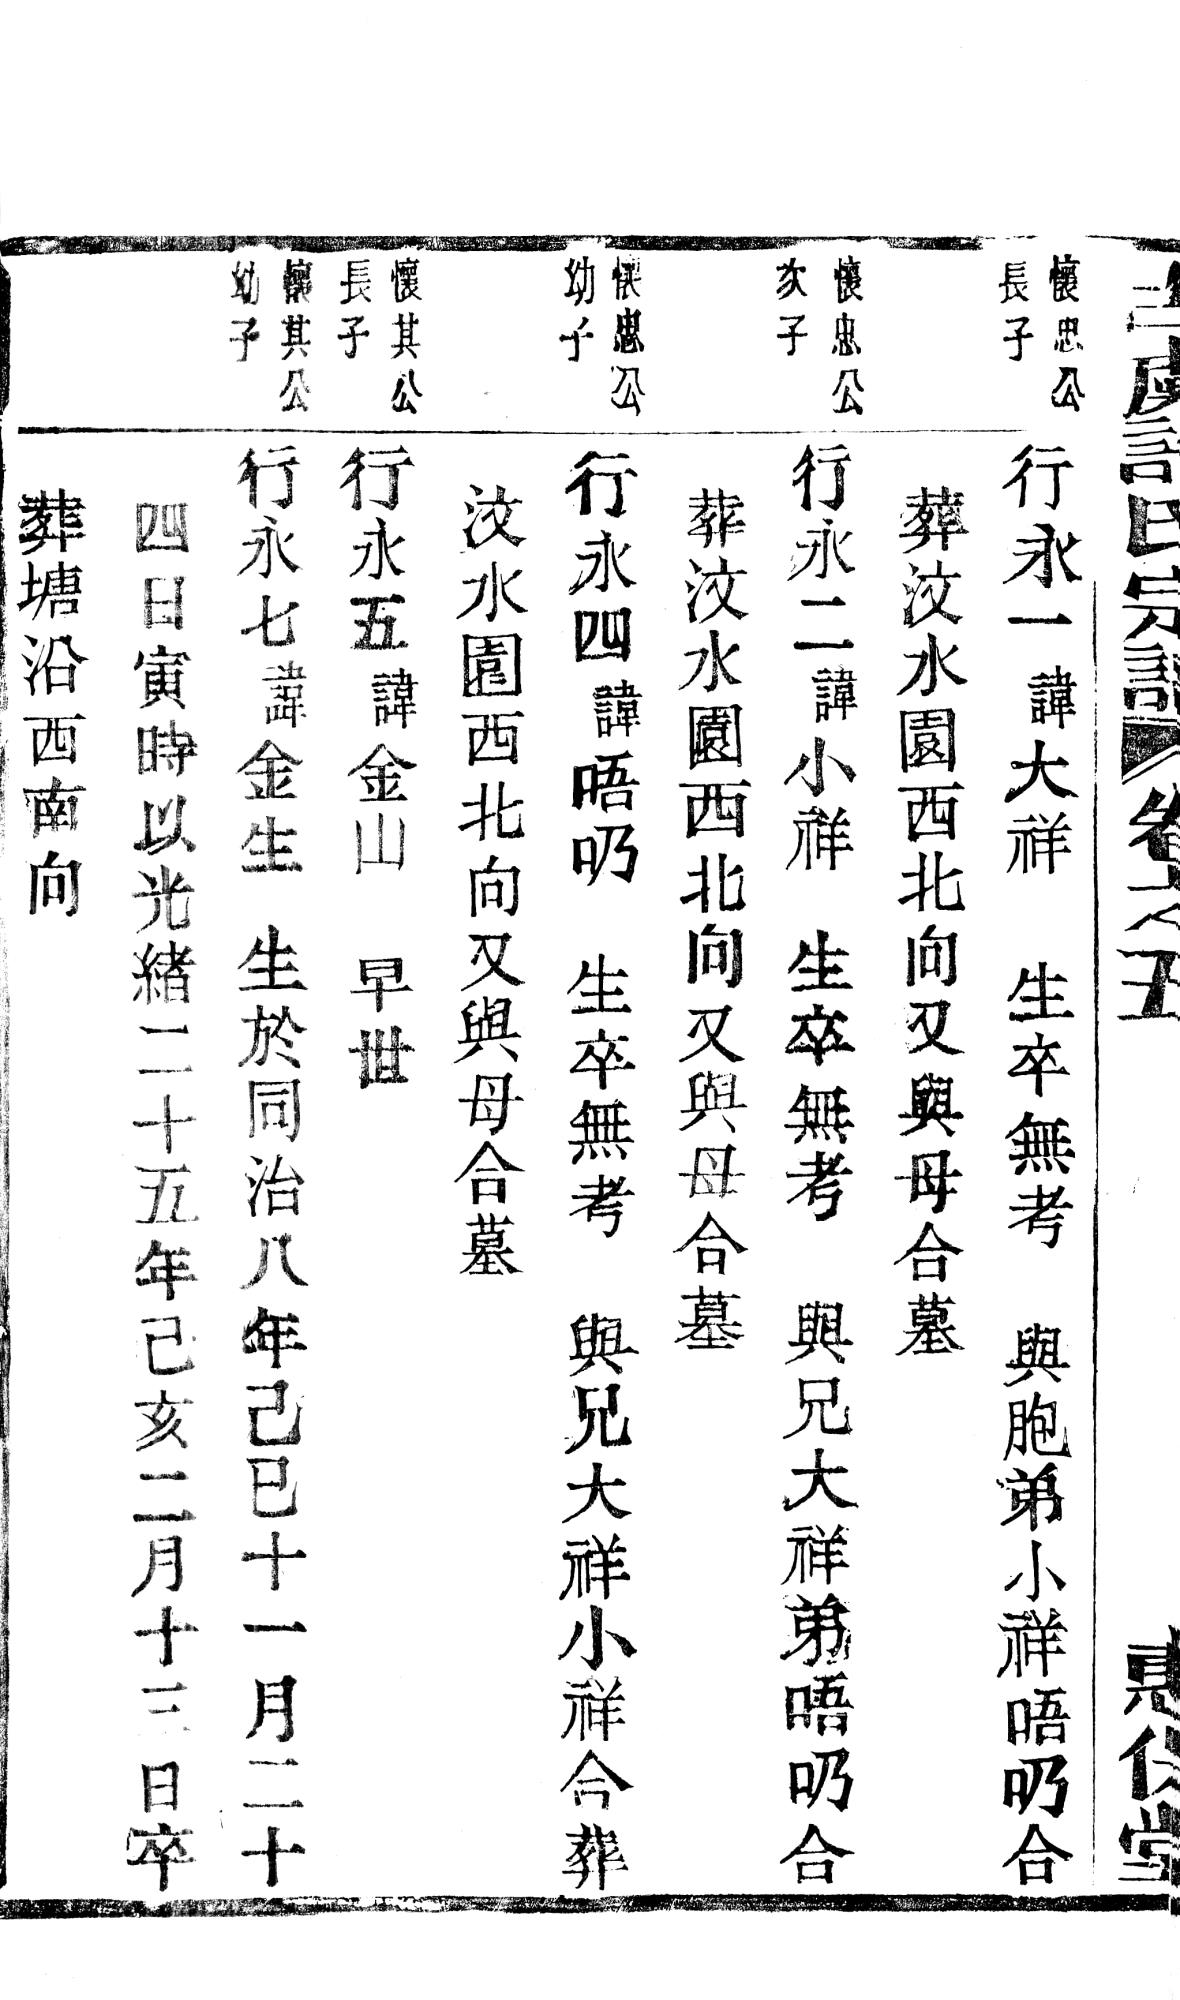 許氏宗譜 卷之五
懷忠公
長子
行永一諱大祥 生卒無考 與胞弟小祥唔叨合
葬汶水園西北向又與母合墓
懷忠公
次子
行永二諱小祥 生卒無考 與兄大祥弟唔叨合
葬汶水園西北向又與母合墓
懷忠公
幼子
行永四諱唔叨 生卒無考 與兄大祥小祥合葬
汶水園西北向又與母合墓
懷其公
長子
行永五諱金山 早世
懷其公
幼子
行永七諱金生 生於同治八年己巳十一月二十
四日寅時以光緒二十五年己亥二月十三日卒
葬塘沿西南向